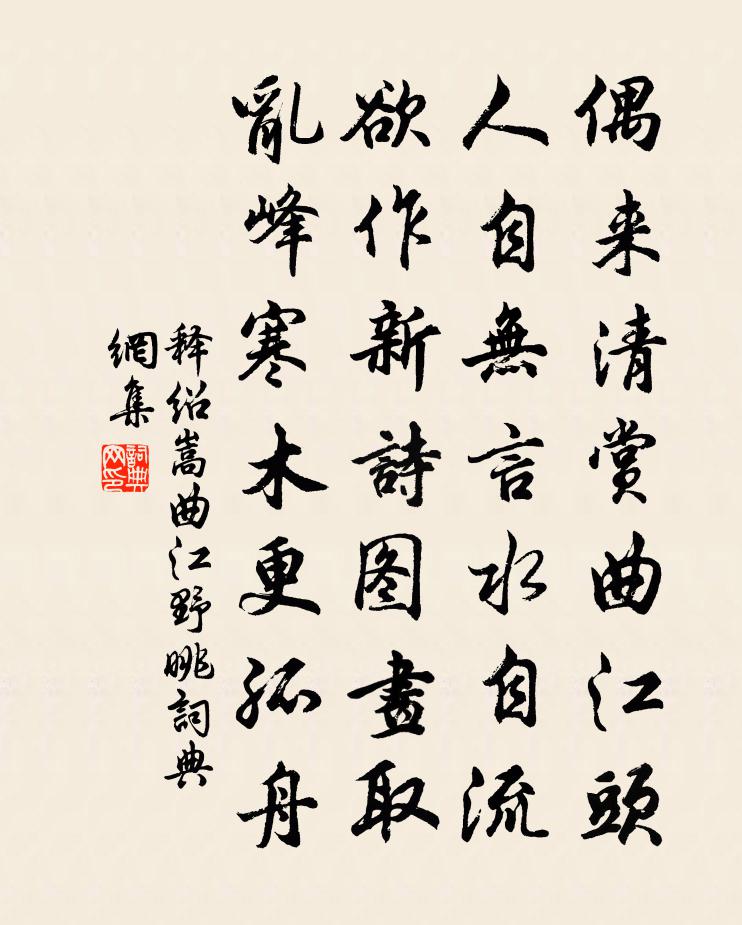 偶来清赏曲江頭
人自無言水自流
欲作新詩图畫取
亂峰寒木更孤舟
释绍嵩曲江野眺詞典
網集
詞典
网印